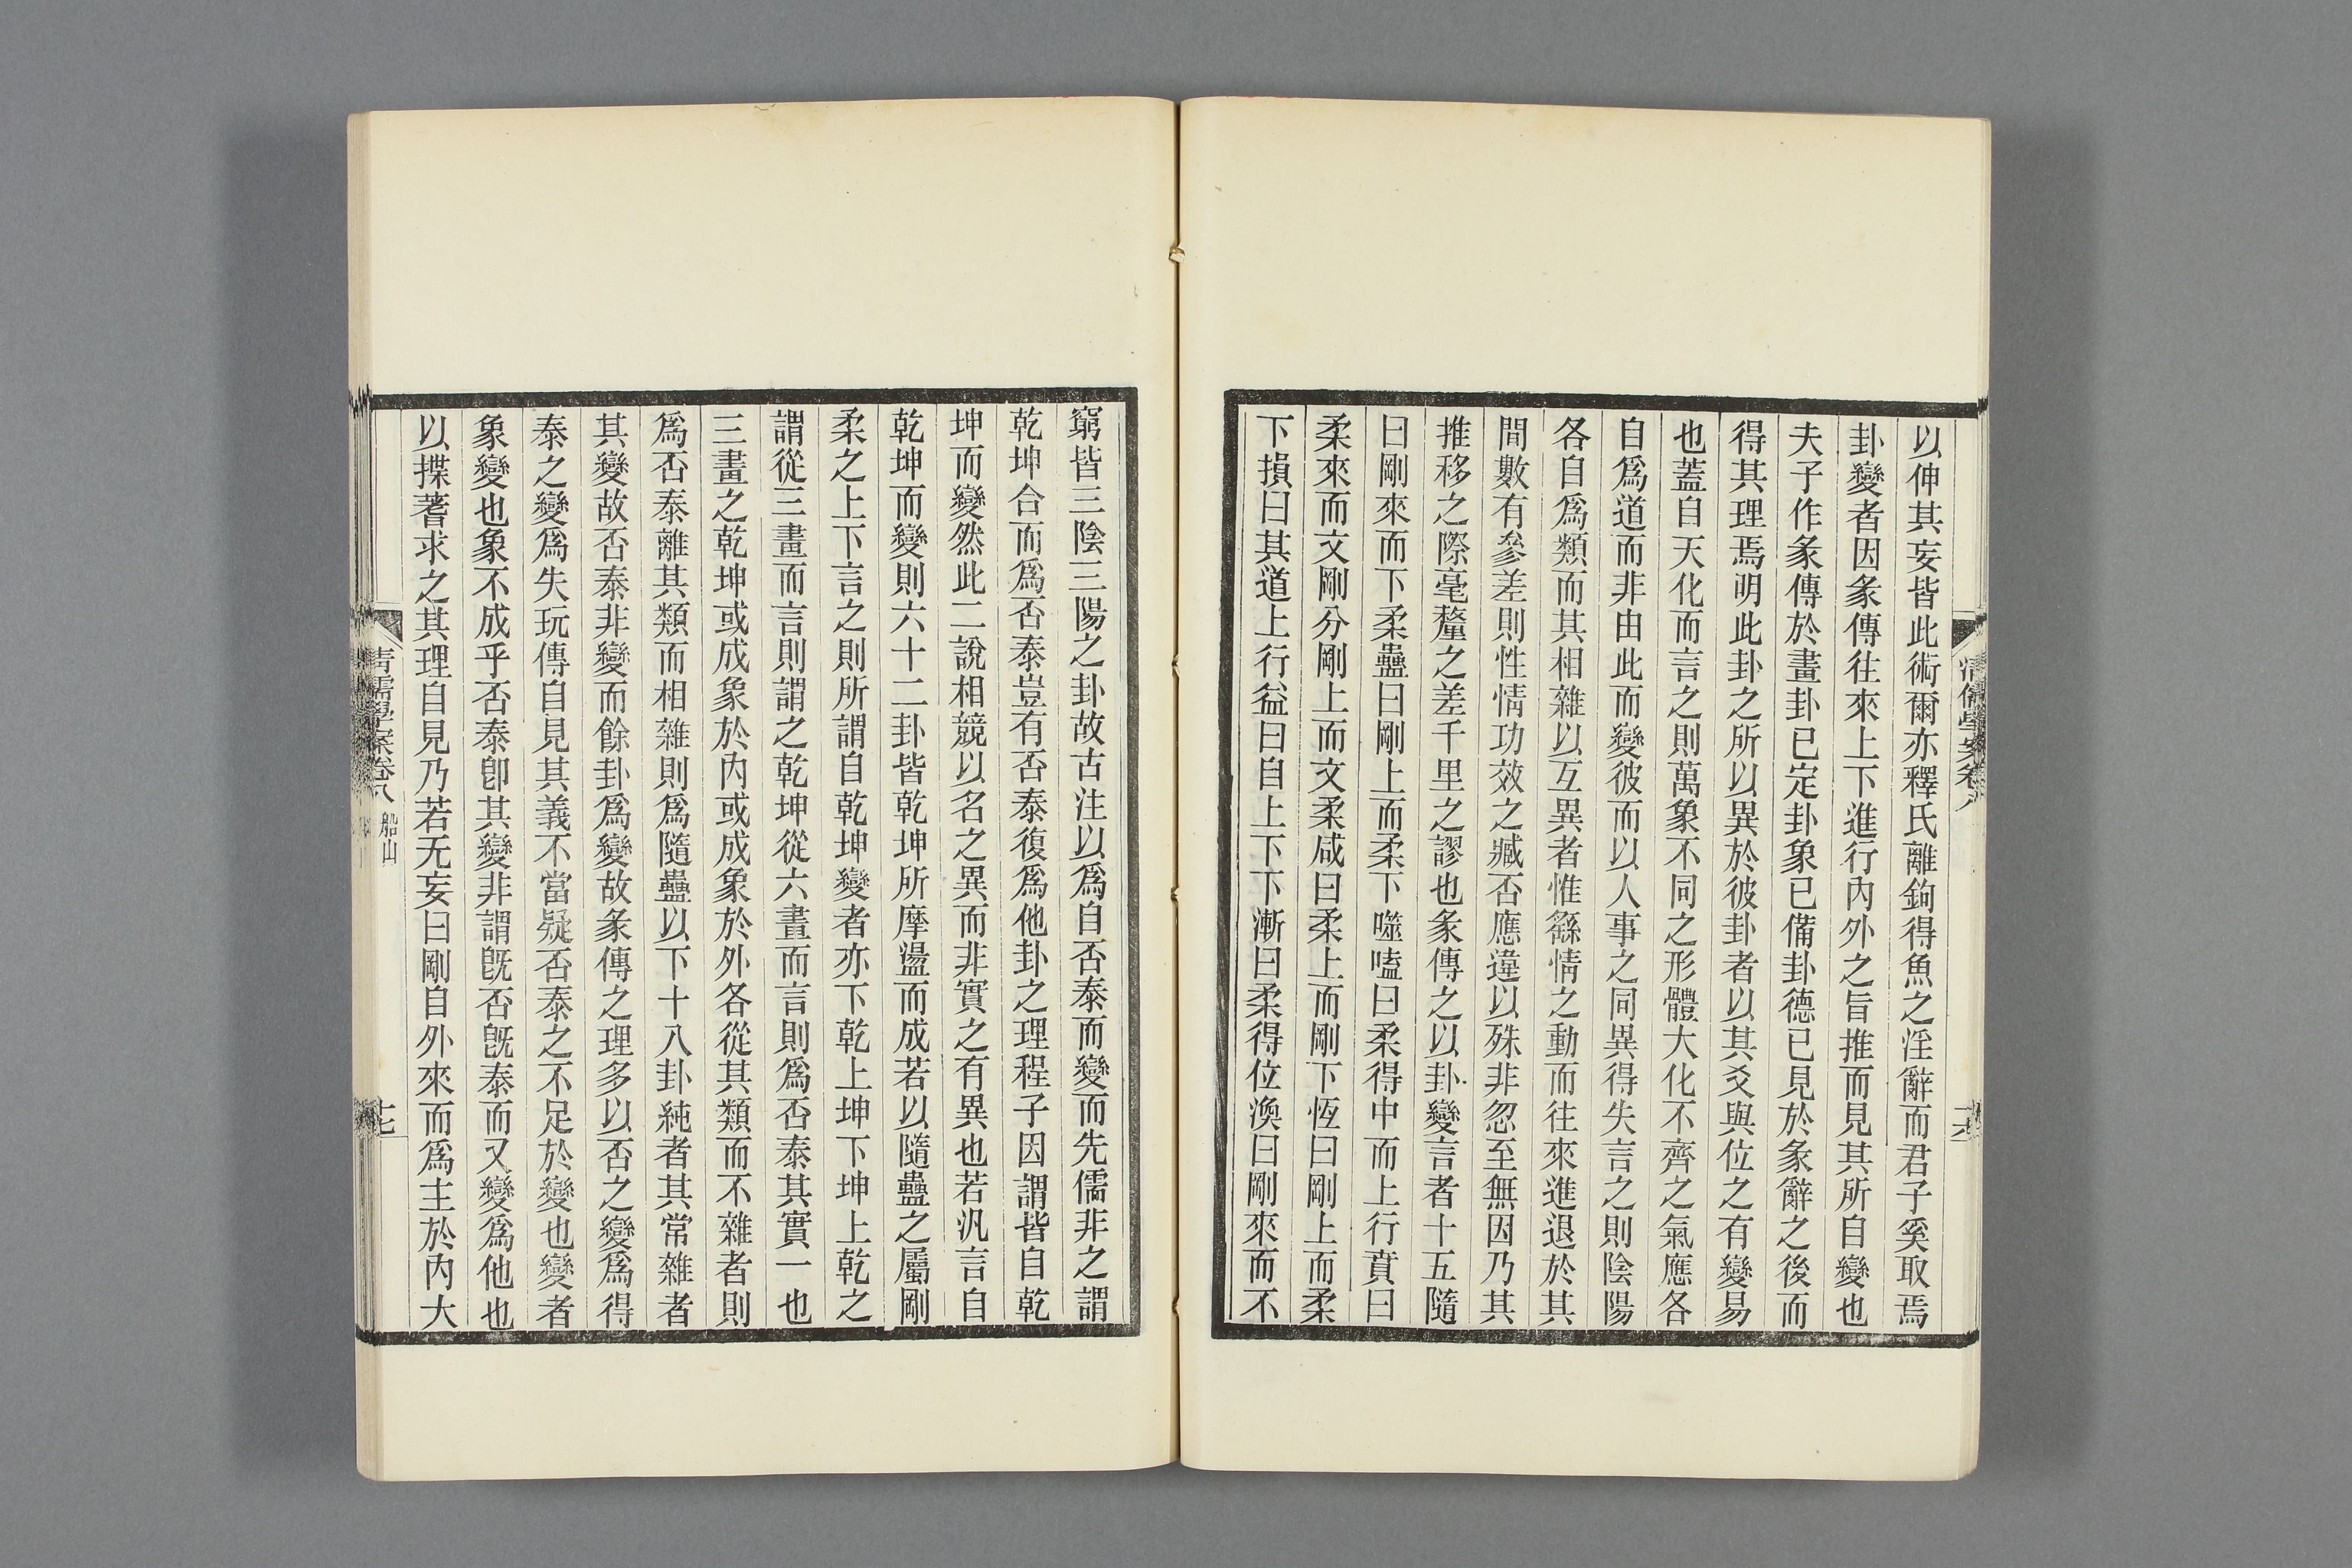 以伸其妄皆此術爾亦釋氏離鉤得魚之淫辭而君子奚取焉
卦變者因彖傳往來上下進行內外之旨推而見其所自變也
夫子作彖傳於畫卦已定卦象已備卦德已見於彖辭之後而
得其理焉明此卦之所以異於彼卦者以其爻與位之有變易
也蓋自天化而言之則萬象不同之形體大化不齊之氣應各
自爲道而非由此而變彼而以人事之同異得失言之則陰陽
各自爲類而其相雜以互異者惟繇情之動而往來進退於其
間數有參差則性情功效之臧否應違以殊非忽至無因乃其
推移之際毫釐之差千里之謬也彖傳之以卦變言者十五隨
曰剛來而下柔蠱曰剛上而柔下噬嗑曰柔得中而上行賁曰
柔來而文剛分剛上而文柔咸曰柔上而剛下恆曰剛上而柔
下損曰其道上行益曰自上下下漸曰柔得位渙曰剛來而不
窮皆三陰三陽之卦故古注以爲自否泰而變而先儒非之謂
乾坤合而爲否泰豈有否泰復爲他卦之理程子因謂皆自乾
坤而變然此二說相競以名之異而非實之有異也若汎言自
乾坤而變則六十二卦皆乾坤所摩盪而成若以隨蠱之屬剛
柔之上下言之則所謂自乾坤變者亦下乾上坤下坤上乾之
謂從三畫而言則謂之乾坤從六畫而言則爲否泰其實一也
三畫之乾坤或成象於內或成象於外各從其類而不雜者則
爲否泰離其類而相雜則爲隨蠱以下十八卦純者其常雜者
其變故否泰非變而餘卦爲變故彖傳之理多以否之變爲得
泰之變爲失玩傳自見其義不當疑否泰之不足於變也變者
象變也象不成乎否泰卽其變非謂旣否旣泰而又變爲他也
以揲蓍求之其理自見乃若无妄曰剛自外來而爲主於內大
清儒學案卷八 船山
十七